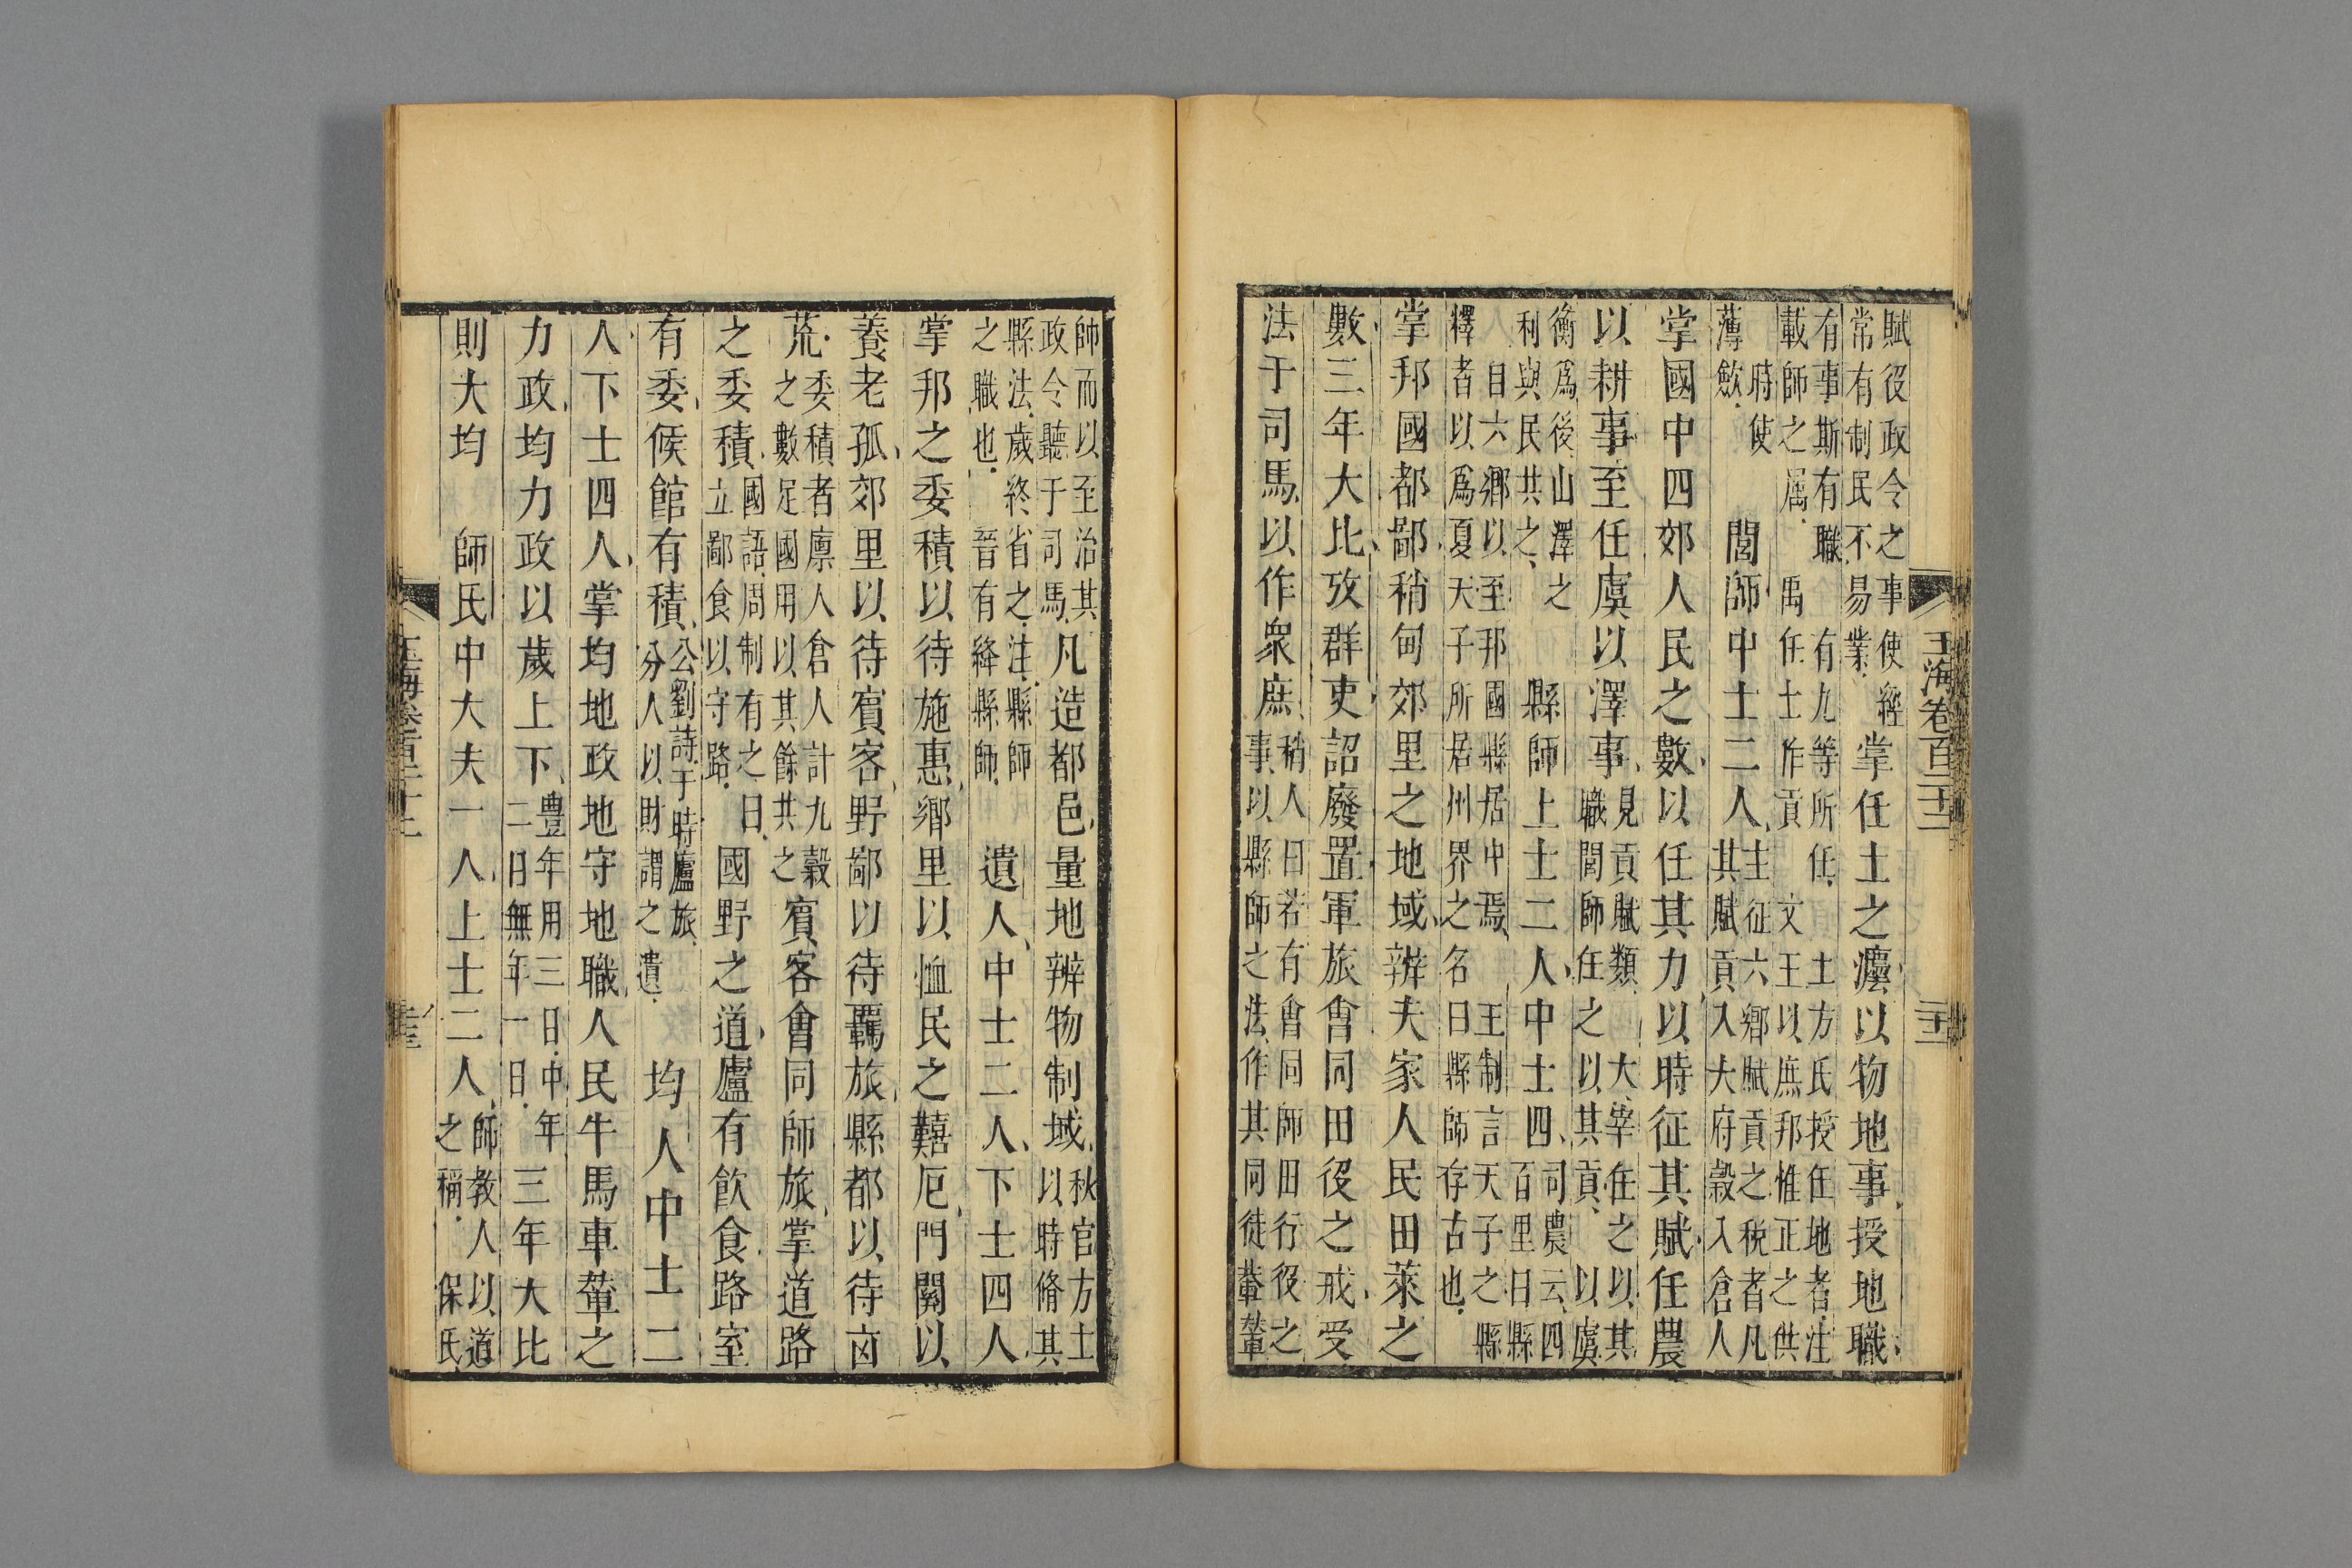 玉海卷百二十二
賦役政令之事使經
常有制民不易業
掌任土之灋以物地事授地職
有事斯有職 有九等所任 土方氏授任地者注
載師之屬 禹任土作貢 文王以庶邦惟正之供
時使
薄斂
閭師中士二人
主征六鄉賦貢之税者凡
其賦貢入大府穀入倉人
掌國中四郊人民之數以任其力以時征其賦任農
以耕事至任虞以澤事
見貢賦類 大宰任之以其
職閭師任之以其貢以虞
衡爲後山澤之
利與民共之
縣師上士二人中士四
司農云四
百里曰縣
自六鄉以至邦國縣居中焉 王制言天子之縣
釋者以爲夏天子所居州界之名曰縣師存古也
掌邦國都鄙稍甸郊里之地域辨夫家人民田萊之
數三年大比攷群吏詔廢置軍旅會同田役之戒受
法于司馬以作衆庶
稍人曰若有會同師田行役之
事以縣師之法作其同徒輂輦
帥而以至治其
政令聽于司馬
凡造都邑量地辨物制域
秋官方士
以時脩其
縣法歲終省之注縣師
之職也 晉有絳縣師
遺人中士二人下士四人
掌邦之委積以待施惠鄉里以恤民之囏厄門關以
養老孤郊里以待賓客野鄙以待羇旅縣都以待凶
荒
委積者廪人倉人計九穀
之數足國用以其餘共之
賓客會同師旅掌道路
之委積
國語周制有之曰
立鄙食以守路
國野之道廬有飲食路室
有委候館有積
公劉詩于時廬旅
分人以財謂之遺
均人中士二
人下士四人掌均地政地守地職人民牛馬車輦之
力政均力政以歲上下
豊年用三日中年
二日無年一日
三年大比
則大均
師氏中大夫一人上士二人
師教人以道
之稱 保氏